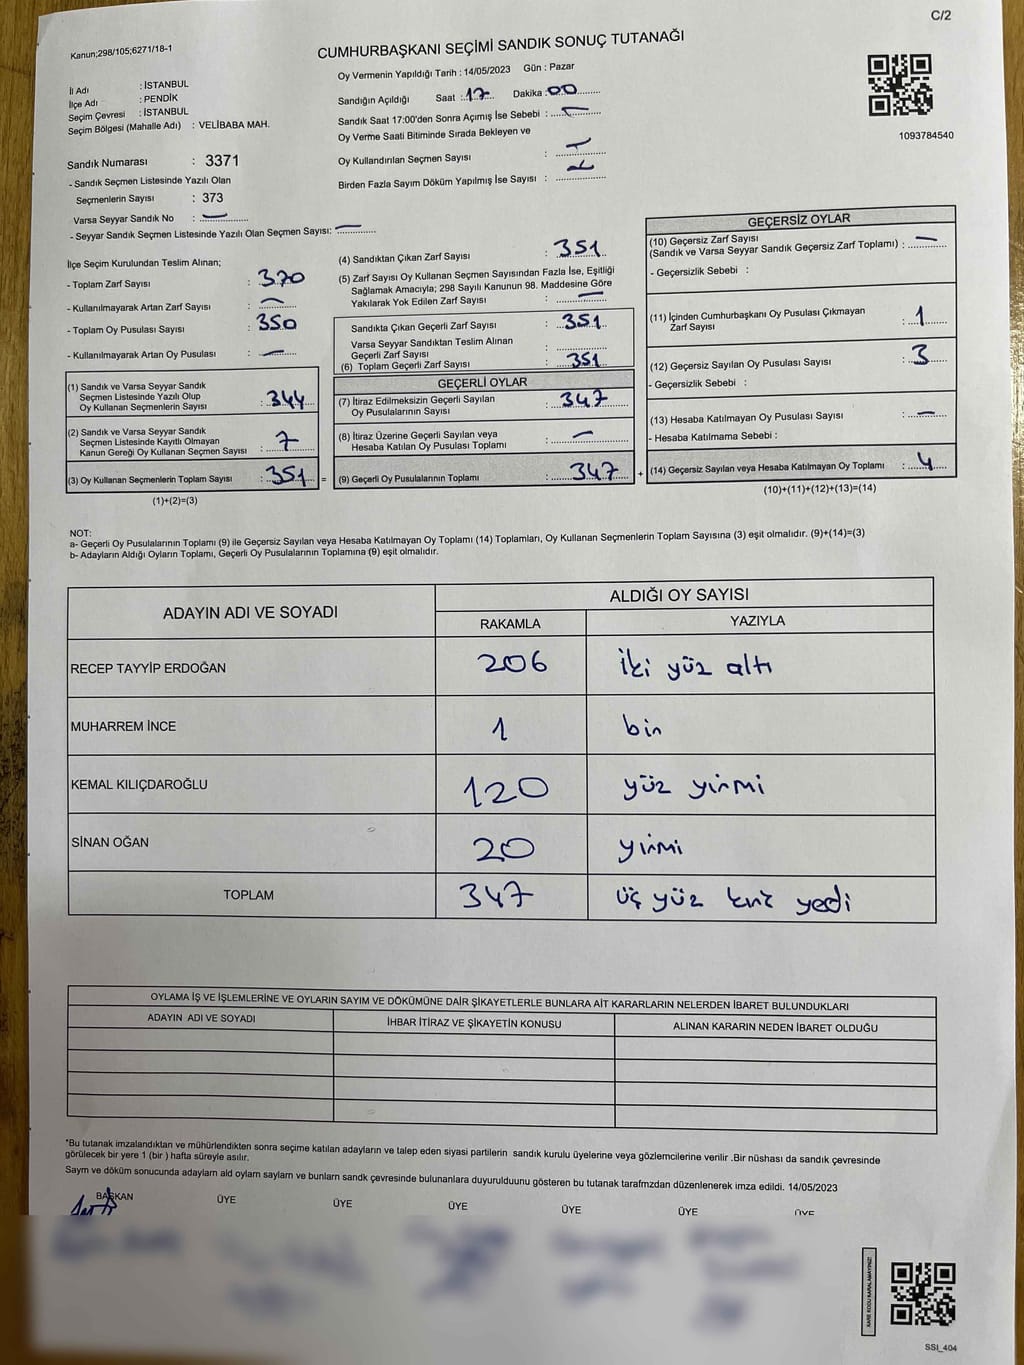 C/2
Kanun;298/105;6271/18-1
CUMHURBAŞKANI SEÇİMİ SANDIK SONUÇ TUTANAĞI
İl Adı : İSTANBUL
İlçe Adı : PENDİK
Seçim Çevresi : İSTANBUL
Seçim Bölgesi (Mahalle Adı) : VELİBABA MAH.
Oy Vermenin Yapıldığı Tarih : 14/05/2023 Gün : Pazar
Sandığın Açıldığı Saat : 17 Dakika : 00
Sandık Saat 17:00'den Sonra Açımış İse Sebebi : –
Oy Verme Saati Bitiminde Sırada Bekleyen ve
Oy Kullandırılan Seçmen Sayısı :
Birden Fazla Sayım Döküm Yapılmış İse Sayısı :
1093784540
Sandık Numarası : 3371
- Sandık Seçmen Listesinde Yazılı Olan
Seçmenlerin Sayısı : 373
Varsa Seyyar Sandık No : –
- Seyyar Sandık Seçmen Listesinde Yazılı Olan Seçmen Sayısı: –
İlçe Seçim Kurulundan Teslim Alınan;
- Toplam Zarf Sayısı : 370
- Kullanılmayarak Artan Zarf Sayısı : –
- Toplam Oy Pusulası Sayısı : 350
- Kullanılmayarak Artan Oy Pusulası : –
(1) Sandık ve Varsa Seyyar Sandık
Seçmen Listesinde Yazılı Olup
Oy Kullanan Seçmenlerin Sayısı : 344
(2) Sandık ve Varsa Seyyar Sandık
Seçmen Listesinde Kayıtlı Olmayan
Kanun Gereği Oy Kullanan Seçmen Sayısı : 7
(3) Oy Kullanan Seçmenlerin Toplam Sayısı : 351 =
(1)+(2)=(3)
(4) Sandıktan Çıkan Zarf Sayısı : 351
(5) Zarf Sayısı Oy Kullanan Seçmen Sayısından Fazla İse, Eşitliği
Sağlamak Amacıyla; 298 Sayılı Kanunun 98. Maddesine Göre
Yakılarak Yok Edilen Zarf Sayısı : –
Sandıkta Çıkan Geçerli Zarf Sayısı : 351
Varsa Seyyar Sandıktan Teslim Alınan
Geçerli Zarf Sayısı :
(6) Toplam Geçerli Zarf Sayısı : 351
GEÇERLİ OYLAR
(7) İtiraz Edilmeksizin Geçerli Sayılan
Oy Pusulalarının Sayısı : 347
(8) İtiraz Üzerine Geçerli Sayılan veya
Hesaba Katılan Oy Pusulası Toplamı : –
(9) Geçerli Oy Pusulalarının Toplamı : 347 +
GEÇERSİZ OYLAR
(10) Geçersiz Zarf Sayısı
(Sandık ve Varsa Seyyar Sandık Geçersiz Zarf Toplamı) : –
- Geçersizlik Sebebi :
(11) İçinden Cumhurbaşkanı Oy Pusulası Çıkmayan
Zarf Sayısı : 1
(12) Geçersiz Sayılan Oy Pusulası Sayısı : 3
- Geçersizlik Sebebi :
(13) Hesaba Katılmayan Oy Pusulası Sayısı : –
- Hesaba Katılmama Sebebi :
(14) Geçersiz Sayılan veya Hesaba Katılmayan Oy Toplamı : 4
(10)+(11)+(12)+(13)=(14)
NOT:
a- Geçerli Oy Pusulalarının Toplamı (9) ile Geçersiz Sayılan veya Hesaba Katılmayan Oy Toplamı (14) Toplamları, Oy Kullanan Seçmenlerin Toplam Sayısına (3) eşit olmalıdır. (9)+(14)=(3)
b- Adayların Aldığı Oyların Toplamı, Geçerli Oy Pusulalarının Toplamına (9) eşit olmalıdır.
ADAYIN ADI VE SOYADI ALDIĞI OY SAYISI
RAKAMLA YAZIYLA
RECEP TAYYİP ERDOĞAN 206 iki yüz altı
MUHARREM İNCE 1 bir
KEMAL KILIÇDAROĞLU 120 yüz yirmi
SİNAN OĞAN 20 yirmi
TOPLAM 347 üç yüz kırk yedi
OYLAMA İŞ VE İŞLEMLERİNE VE OYLARIN SAYIM VE DÖKÜMÜNE DAİR ŞİKAYETLERLE BUNLARA AİT KARARLARIN NELERDEN İBARET BULUNDUKLARI
ADAYIN ADI VE SOYADI İHBAR İTİRAZ VE ŞİKAYETİN KONUSU ALINAN KARARIN NEDEN İBARET OLDUĞU
"Bu tutanak imzalandıktan ve mühürlendikten sonra seçime katılan adayların ve talep eden siyasi partilerin sandık kurulu üyelerine veya gözlemcilerine verilir .Bir nüshası da sandık çevresinde
görülecek bir yere 1 (bir ) hafta süreyle asılır.
Saym ve döküm sonucunda adaylarn ald oylarn saylarn ve bunlarn sandk çevresinde bulunanlara duyurulduunu gösteren bu tutanak tarafmzdan düzenlenerek imza edildi. 14/05/2023
BAŞKAN ÜYE ÜYE ÜYE ÜYE ÜYE ÜYE
KARE KODU KARALAMAYINIZ!
SSI_404